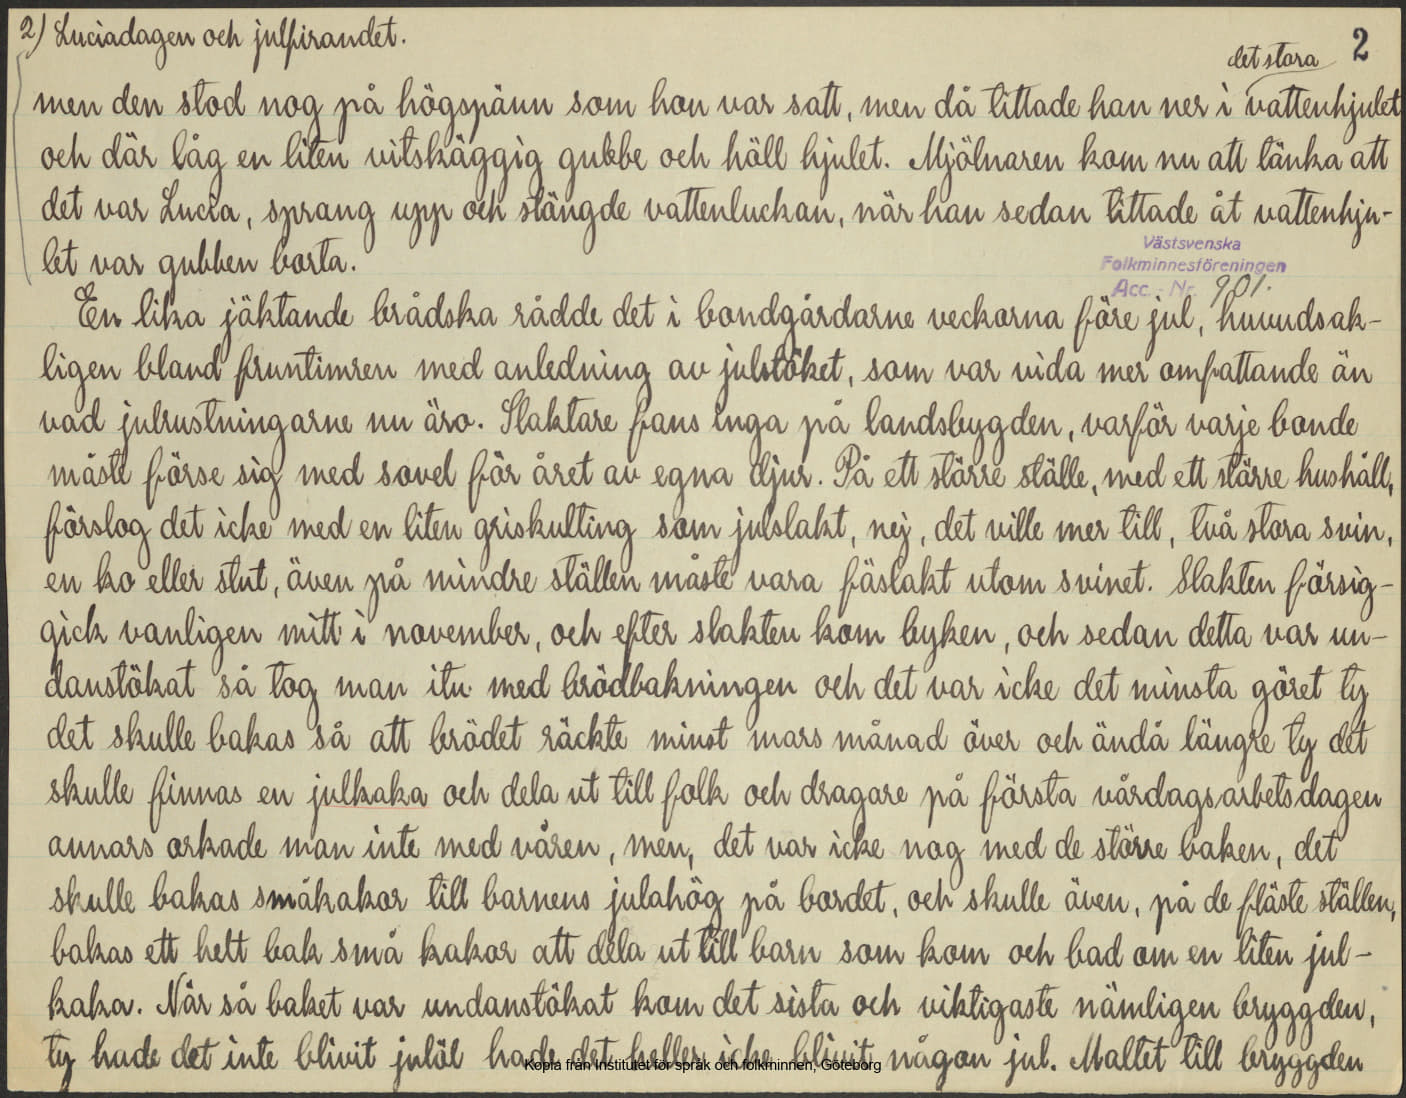 2) Luciadagen och julfirandet.
2
det stora
men den stod nog på högspänn som hon var satt, men då tittade han ner i vattenhjulet
och där låg en liten vitskäggig gubbe och höll hjulet. Mjölnaren kom nu att tänka att
det var Lucia, sprang upp och stängde vattenluckan, när han sedan tittade åt vattenhju-
let var gubben borta.
Västsvenska
Folkminnesföreningen
Acc. - Nr. 901.
En lika jäktande brådska rådde det i bondgårdarne veckorna före jul, huvudsak-
ligen bland fruntimren med anledning av julstöket, som var vida mer omfattande än
vad julrustningarne nu äro. Slaktare fans inga på landsbygden, varför varje bonde
måste förse sig med sovel för året av egna djur. På ett större ställe, med ett större hushåll,
förslog det icke med en liten griskulting som julslakt, nej, det ville mer till, två stora svin,
en ko eller stut, även på mindre ställen måste vara fäslakt utom svinet. Slakten försig-
gick vanligen mitt i november, och efter slakten kom byken, och sedan detta var un-
danstökat så tog man itu med brödbakningen och det var icke det minsta göret ty
det skulle bakas så att brödet räckte minst mars månad över och ändå längre ty det
skulle finnas en julkaka och dela ut till folk och dragare på första vårdagsarbetsdagen
annars orkade man inte med våren, men, det var icke nog med de större baken, det
skulle bakas småkakor till barnens julahög på bordet, och skulle även, på de fläste ställen,
bakas ett helt bak små kakor att dela ut till barn som kom och bad om en liten jul-
kaka. När så baket var undanstökat kom det sista och viktigaste nämligen bryggden,
ty hade det inte blivit julöl hade det heller icke blivit någon jul. Maltet till bryggden
Kopia från Institutet för språk och folkminnen, Göteborg